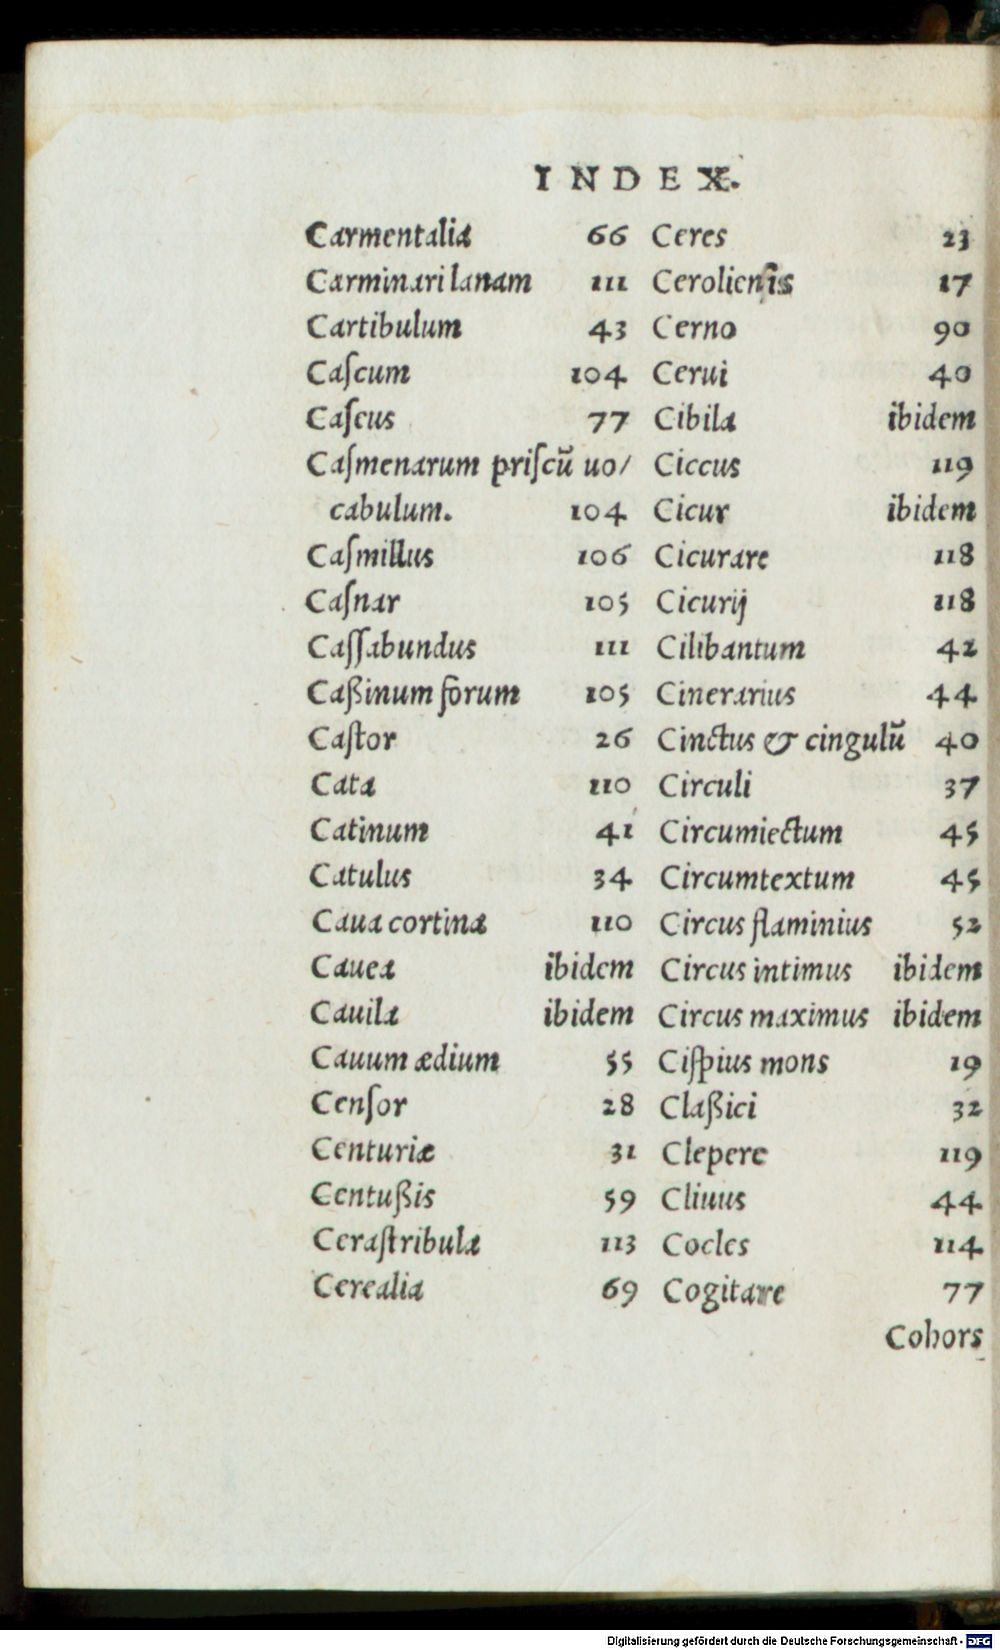 INDEX.
Carmentalia 66
Carminari lanam 111
Cartibulum 43
Caſcum 104
Caſcus 77
Caſmenarum priſcū uo/
cabulum. 104
Caſmillus 106
Caſnar 105
Caſſabundus 111
Caßinum forum 105
Caſtor 26
Cata 110
Catinum 41
Catulus 34
Caua cortina 110
Cauea ibidem
Cauila ibidem
Cauum ædium 55
Cenſor 28
Centuriæ 31
Centußis 59
Ceraſtribula 113
Cerealia 69
Ceres 23
Cerolienſis 17
Cerno 90
Cerui 40
Cibila ibidem
Ciccus 119
Cicur ibidem
Cicurare 118
Cicurij 118
Cilibantum 42
Cinerarius 44
Cinctus & cingulū 40
Circuli 37
Circumiectum 45
Circumtextum 45
Circus flaminius 52
Circus intimus ibidem
Circus maximus ibidem
Ciſpius mons 19
Claßici 32
Clepere 119
Cliuus 44
Cocles 114
Cogitare 77
Cohors
Digitalisierung gefördert durch die Deutsche Forschungsgemeinschaft - DFG